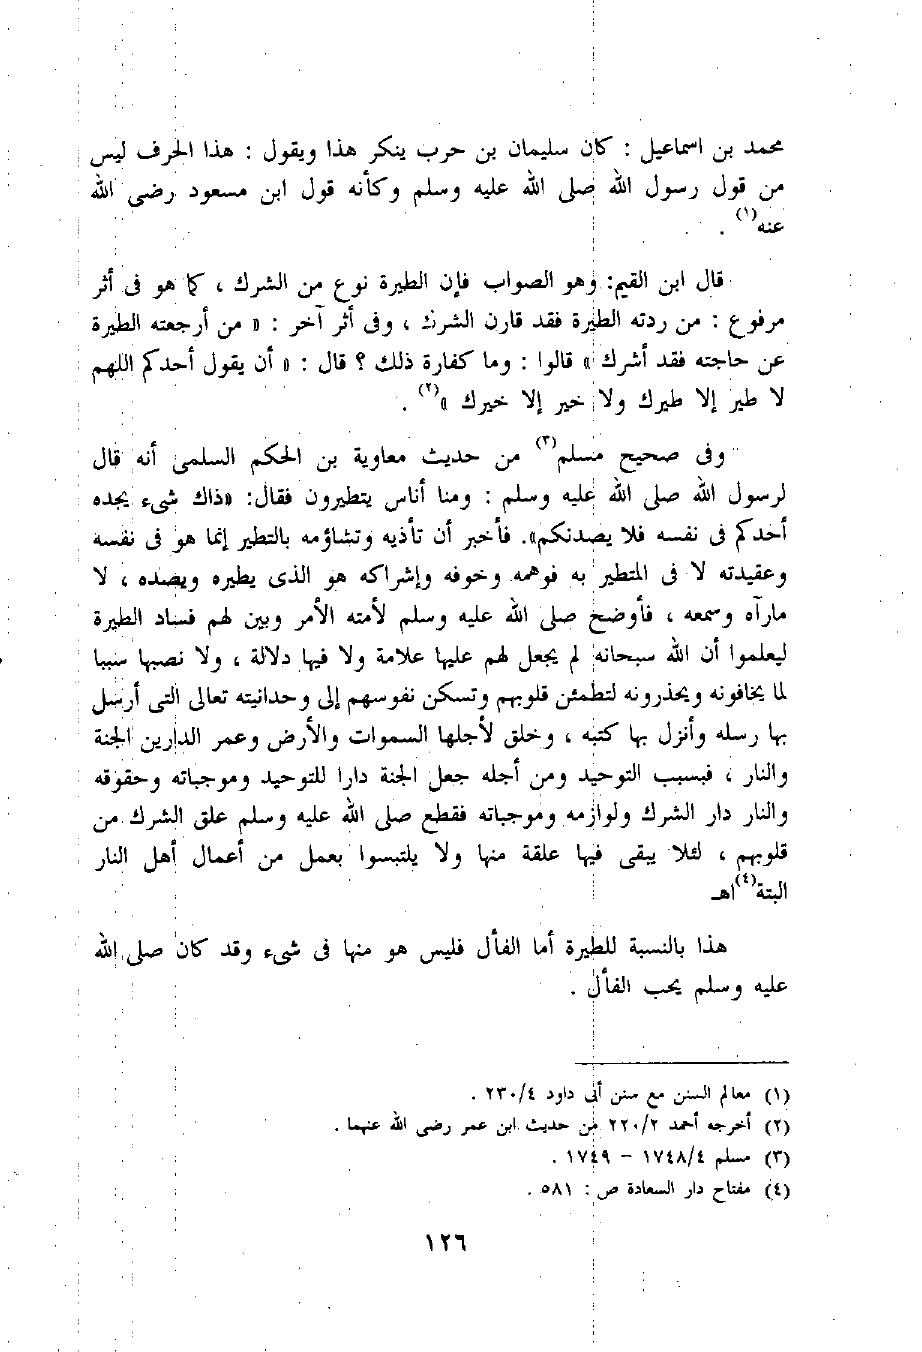 محمد بن اسماعيل : كان سليمان بن حرب ينكر هذا ويقول : هذا الحرف ليس
من قول رسول الله صلى الله عليه وسلم وكأنه قول ابن مسعود رضى الله
عنه(١) .
قال ابن القيم: وهو الصواب فإن الطيرة نوع من الشرك ، كما هو فى أثر
مرفوع : من ردته الطيرة فقد قارن الشرك ، وفى أثر آخر : « من أرجعته الطيرة
عن حاجته فقد أشرك » قالوا : وما كفارة ذلك ؟ قال : « أن يقول أحدكم اللهم
لا طير إلا طيرك ولا خير إلا خيرك »(٢) .
وفى صحيح مسلم(٣) من حديث معاوية بن الحكم السلمى أنه قال
لرسول الله صلى الله عليه وسلم : ومنا أناس يتطيرون فقال: «ذاك شىء يجده
أحدكم فى نفسه فلا يصدنكم». فأخبر أن تأذيه وتشاؤمه بالتطير إنما هو فى نفسه
وعقيدته لا فى المتطير به فوهمه وخوفه وإشراكه هو الذى يطيره ويصده ، لا
مارآه وسمعه ، فأوضح صلى الله عليه وسلم لأمته الأمر وبين لهم فساد الطيرة
ليعلموا أن الله سبحانه لم يجعل لهم عليها علامة ولا فيها دلالة ، ولا نصبها سببا
لما يخافونه ويحذرونه لتطمئن قلوبهم وتسكن نفوسهم إلى وحدانيته تعالى التى أرسل
بها رسله وأنزل بها كتبه ، وخلق لأجلها السموات والأرض وعمر الدارين الجنة
والنار ، فبسبب التوحيد ومن أجله جعل الجنة دارا للتوحيد وموجباته وحقوقه
والنار دار الشرك ولوازمه وموجباته فقطع صلى الله عليه وسلم علق الشرك من
قلوبهم ، لئلا يبقى فيها علقة منها ولا يلتبسوا بعمل من أعمال أهل النار
البتة(٤)اهـ
هذا بالنسبة للطيرة أما الفأل فليس هو منها فى شىء وقد كان صلى الله
عليه وسلم يحب الفأل .
(١) معالم السنن مع سنن أبى داود ٢٣٠/٤ .
(٢) أخرجه أحمد ٢٢٠/٢ من حديث ابن عمر رضى الله عنهما .
(٣) مسلم ١٧٤٨/٤ – ١٧٤٩ .
(٤) مفتاح دار السعادة ص : ٥٨١ .
١٢٦